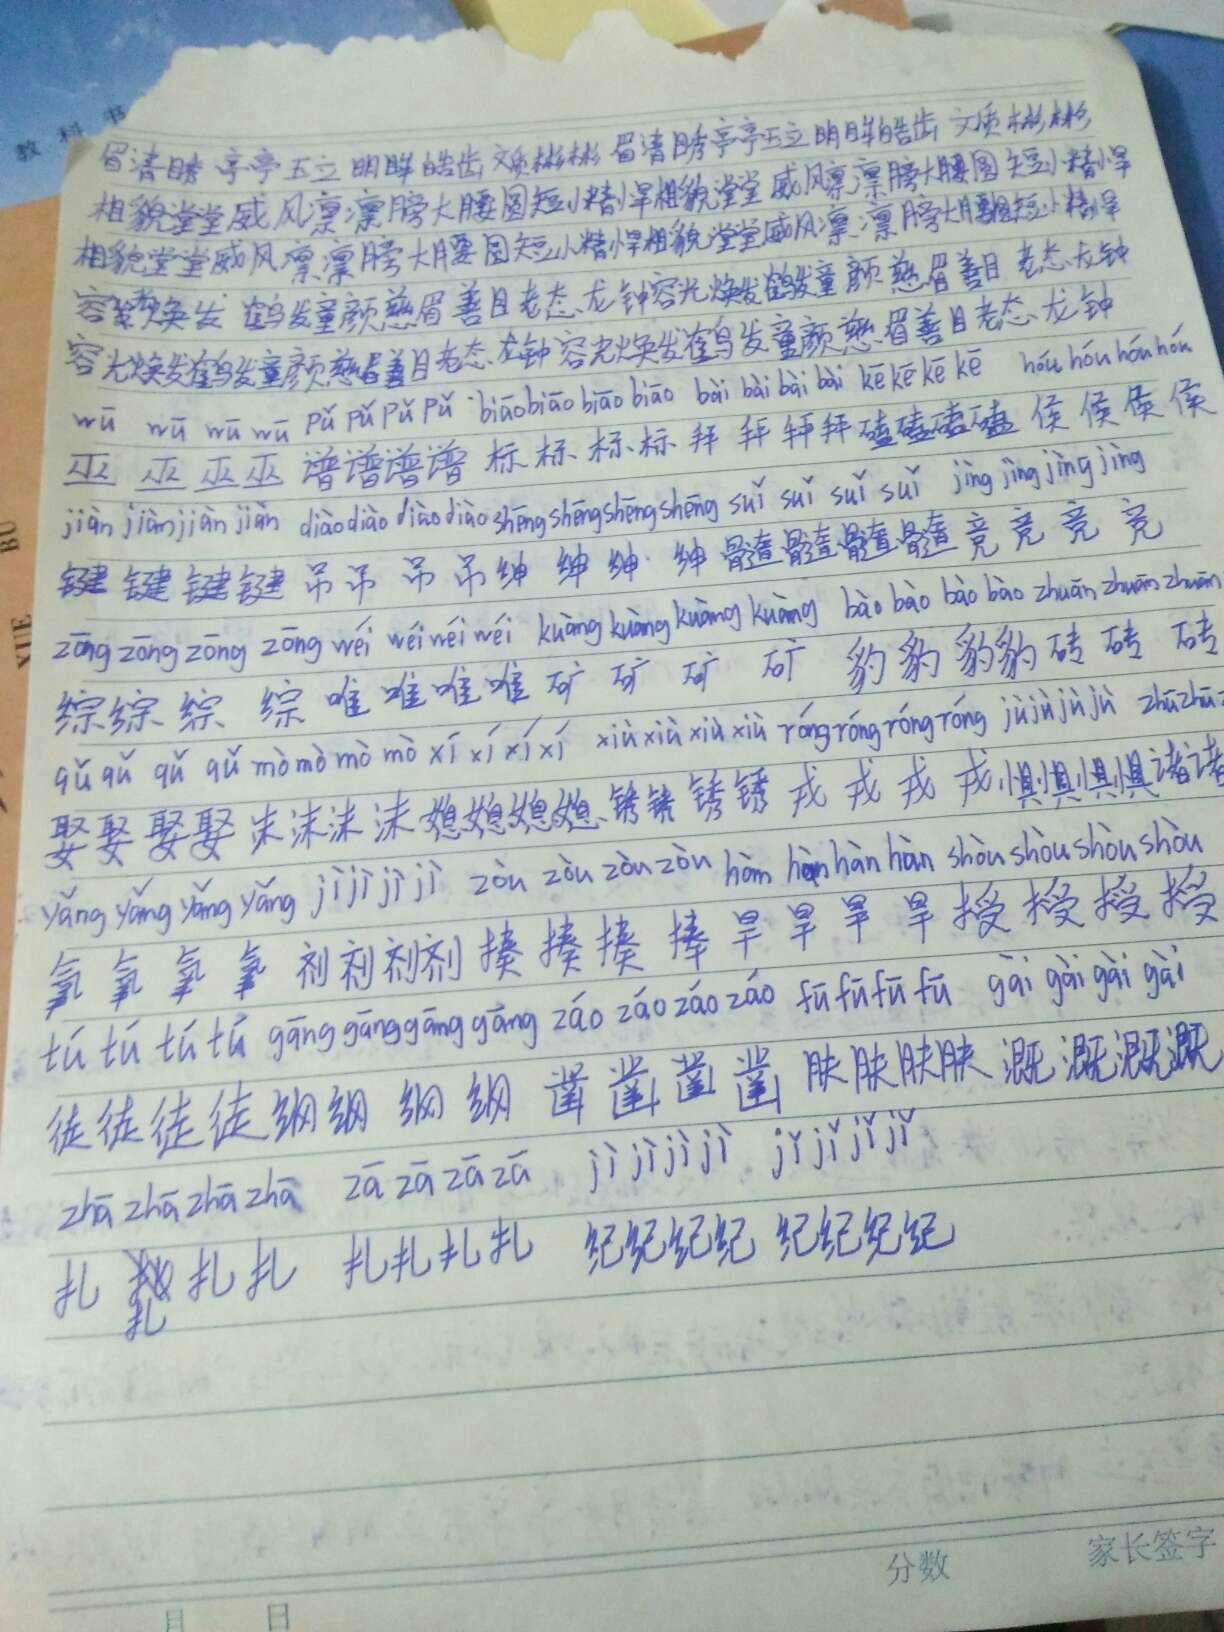 教科书
眉清目秀 亭亭玉立 明眸皓齿 文质彬彬 眉清目秀亭亭玉立明眸皓齿 文质彬彬
相貌堂堂威风凛凛膀大腰圆短小精悍相貌堂堂 威风凛凛膀大腰圆 短小精悍
相貌堂堂威风凛凛膀大腰圆短小精悍相貌堂堂威风凛凛膀大腰圆短小精悍
容光焕发 鹤发童颜慈眉善目老态龙钟容光焕发鹤发童颜慈眉善目 老态龙钟
容光焕发鹤发童颜慈眉善目老态龙钟容光焕发鹤发童颜慈眉善目老态龙钟
wū wū wū wū pǔ pǔ pǔ pǔ biāo biāo biāo biāo bài bài bài bài kē kē kē kē hóu hóu hóu hóu
巫 巫 巫 巫 谱谱谱谱 标 标 标 标 拜 拜 拜 拜 磕磕磕磕 侯 侯 侯 侯
jiàn jiàn jiàn jiàn diào diào diào diào shēng shēng shēng shēng suǐ suǐ suǐ suǐ jìng jìng jìng jìng
键 键 键 键 吊 吊 吊 吊 绅 绅 绅 绅 髓髓髓髓 竞 竞 竞 竞
zōng zōng zōng zōng wéi wéi wéi wéi kuàng kuàng kuàng kuàng bào bào bào bào zhuān zhuān zhuān
综 综 综 综 唯 唯 唯 唯 矿 矿 矿 矿 豹 豹 豹豹 砖 砖 砖
qǔ qǔ qǔ qǔ mò mò mò mò xí xí xí xí xiù xiù xiù xiù róng róng róng róng jù jù jù jù zhū zhū
娶娶 娶娶 沫沫沫沫 媳媳媳媳 锈锈 锈锈 戎 戎 戎 戎 惧惧惧惧诸诸
yǎng yǎng yǎng yǎng jì jì jì jì zòu zòu zòu zòu hàn hàn hàn hàn shòu shòu shòu shòu
氧 氧 氧 氧 剂 剂 剂 剂 揍 揍 揍 揍 旱 旱 旱 旱 授 授 授 授
tú tú tú tú gāng gāng gāng gāng záo záo záo záo fū fū fū fū gài gài gài gài
徒 徒 徒 徒 纲 纲 纲 纲 凿 凿 凿 凿 肤肤肤肤 溉 溉溉溉
zhā zhā zhā zhā zā zā zā zā jì jì jì jì jǐ jǐ jǐ jǐ
扎 扎 扎 扎 扎扎扎扎 纪纪纪纪 纪纪纪纪
分数 家长签字
月 日